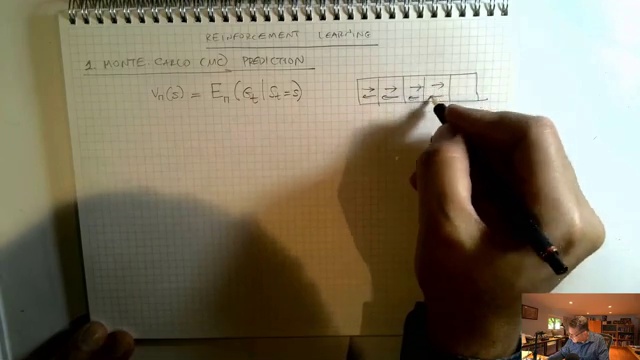 REINFORCEMENT LEARNING
1. MONTE CARLO (MC) PREDICTION
Vπ(s) = Eπ(Gt | St = s)
→ → → →
← ← ← ←